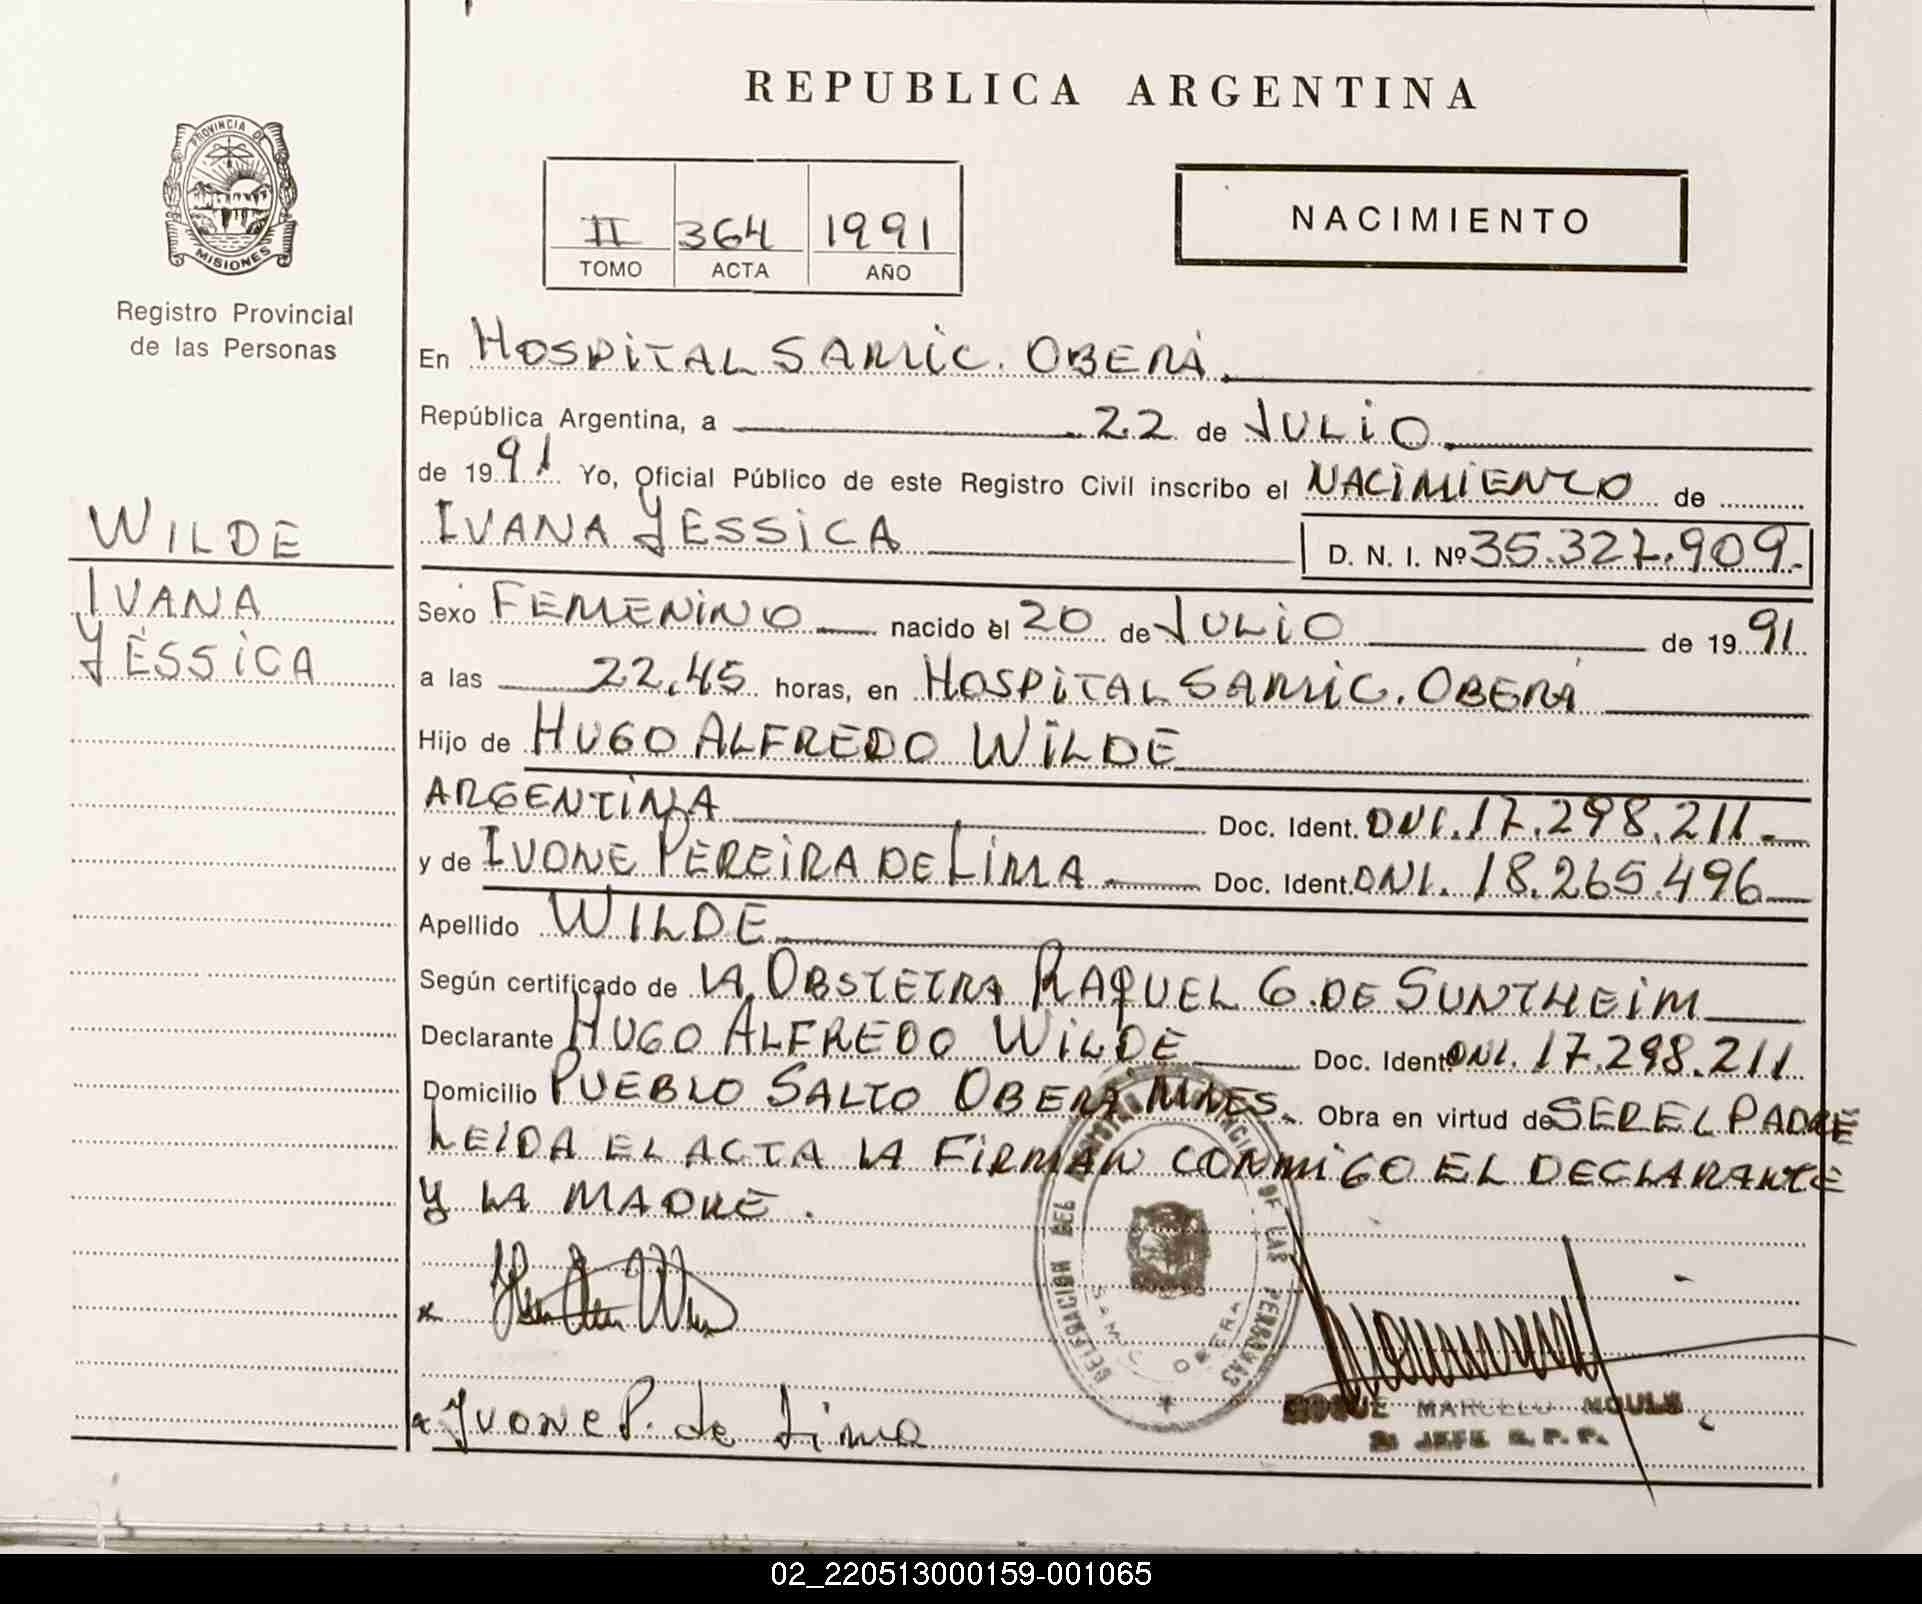 REPUBLICA ARGENTINA
PROVINCIA DE
MISIONES
Registro Provincial
de las Personas
II 364 1991
TOMO ACTA AÑO
NACIMIENTO
WILDE
IVANA
YÉSSICA
En HOSPITAL SAMIC. OBERÁ
República Argentina, a 22 de JULIO
de 1991 Yo, Oficial Público de este Registro Civil inscribo el NACIMIENTO de
IVANA YESSICA D. N. I. Nº 35.327.909.-
Sexo FEMENINO nacido el 20 de JULIO de 1991
a las 22,45 horas, en HOSPITAL SAMIC. OBERÁ
Hijo de HUGO ALFREDO WILDE
ARGENTINA Doc. Ident. DNI. 17.298.211.-
y de IVONE PEREIRA DE LIMA Doc. Ident. DNI. 18.265.496
Apellido WILDE
Según certificado de LA OBSTETRA RAQUEL G. DE SUNTHEIM
Declarante HUGO ALFREDO WILDE Doc. Ident DNI. 17.298.211
Domicilio PUEBLO SALTO OBERA MNES. Obra en virtud de SER EL PADRE
LEIDA EL ACTA LA FIRMAN CONMIGO EL DECLARANTE
Y LA MADRE.
DELEGACION DEL REGISTRO PROVINCIAL DE LAS PERSONAS
SAMIC OBERA
Yvone P. de Lima
ROQUE MARCELO
JEFE R. P. P.
02_220513000159-001065